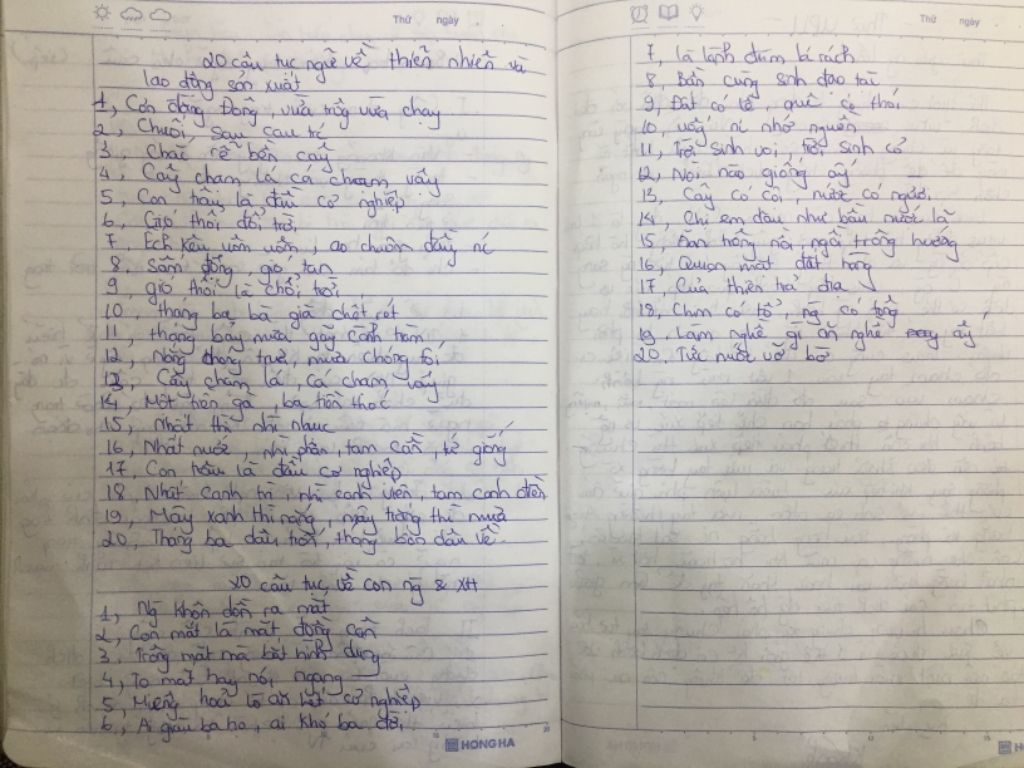 Thứ ngày
20 câu tục ngữ về thiên nhiên và
lao động sản xuất
1, Cơn đằng Đông, vừa trông vừa chạy
2, Chuối sau cau trc
3, Chắc rễ bền cây
4, Cây chạm lá cá chạm vây
5, Con trâu là đầu cơ nghiệp
6, thổi đổi trời
7, Ếch kêu uôm uôm, ao chuôm đầy nc
8, Sấm động, gió tan
9, gió thổi là chổi trời
10, tháng ba bà già chết rét
11, tháng bảy mưa gãy cành trám
12, Nắng chóng trưa, mưa chóng tối
13, Cây chạm lá, cá chạm vây
14, Một tiền gà, ba tiền thóc
15, Nhất thì nhì thục
16, Nhất nước, nhì phân, tam cần, tứ giống
17, Con trâu là đầu cơ nghiệp
18, Nhất canh trì, nhì canh viên, tam canh điền
19, Mây xanh thì nắng, mây trắng thì mưa
20, Tháng ba dâu trốn, tháng bốn dâu về
20 câu tục, về con ng & XH
1, Ng khôn dồn ra mặt
2, Con mắt là mặt đồng cân
3. Trông mặt mà bắt hình dung
4, To mắt hay nói ngang
5, Miệng hoả lò ăn hết cơ nghiệp
6, Ai giàu ba họ, ai khó ba đời
HONG HA
Thứ ngày
7, lá lành đùm lá rách
8, Bần cùng sinh đạo tặc
9, Đất có lề, quê có thói
10, uống nc nhớ nguồn
11, trời sinh voi, trời sinh cỏ
12, Nòi nào giống ấy
13, Cây có cội, nước có nguồn
14, Chị em dâu như bầu nước lã
15, Ăn trông nồi, ngồi trông hướng
16, Quen mặt đắt hàng
17, Của thiên trả địa
18, Chim có tổ, ng có tông
19, Làm nghề gì ăn nghề ấy
20. Tức nước vỡ bờ
HONG HA